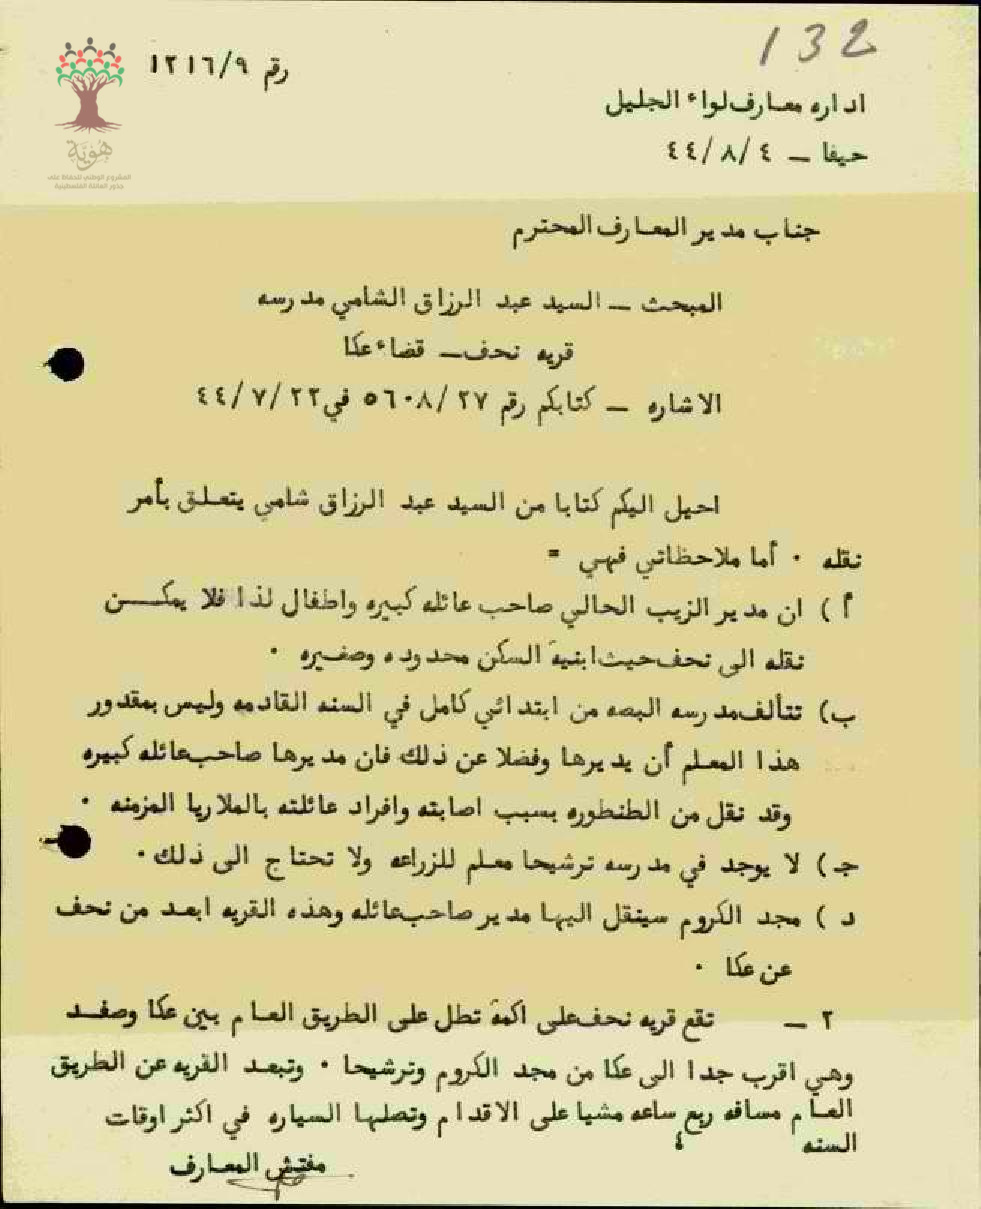 132
رقم ١٢١٦/٩
هوية
المشروع الوطني للحفاظ على
جذور العائلة الفلسطينية
اداره معارف لواء الجليل
حيفا – ٤٤/٨/٤
جناب مدير المعارف المحترم
المبحث – السيد عبد الرزاق الشامي مدرسه
قريه نحف – قضاء عكا
الاشاره – كتابكم رقم ٥٦٠٨/٢٧ في ٤٤/٧/٢٢
احيل اليكم كتابا من السيد عبد الرزاق شامي يتعلق بأمر
نقله . أما ملاحظاتي فهي =
أ ) ان مدير الزيب الحالي صاحب عائله كبيره واطفال لذا فلا يمكن
نقله الى نحف حيث ابنية السكن محدوده وصغيره .
ب) تتألف مدرسه البصه من ابتدائي كامل في السنه القادمه وليس بمقدور
هذا المعلم أن يديرها وفضلا عن ذلك فان مديرها صاحب عائله كبيره
وقد نقل من الطنطوره بسبب اصابته وافراد عائلته بالملاريا المزمنه .
جـ ) لا يوجد في مدرسه ترشيحا معلم للزراعه ولا تحتاج الى ذلك .
د ) مجد الكروم سينقل اليها مدير صاحب عائله وهذه القريه ابعد من نحف
عن عكا .
٢ – تقع قريه نحف على اكمة تطل على الطريق العام بين عكا وصفد
وهي اقرب جدا الى عكا من مجد الكروم وترشيحا . وتبعد القريه عن الطريق
العام مسافه ربع ساعه مشيا على الاقدام وتصلها السياره في اكثر اوقات
السنه
مفتش المعارف